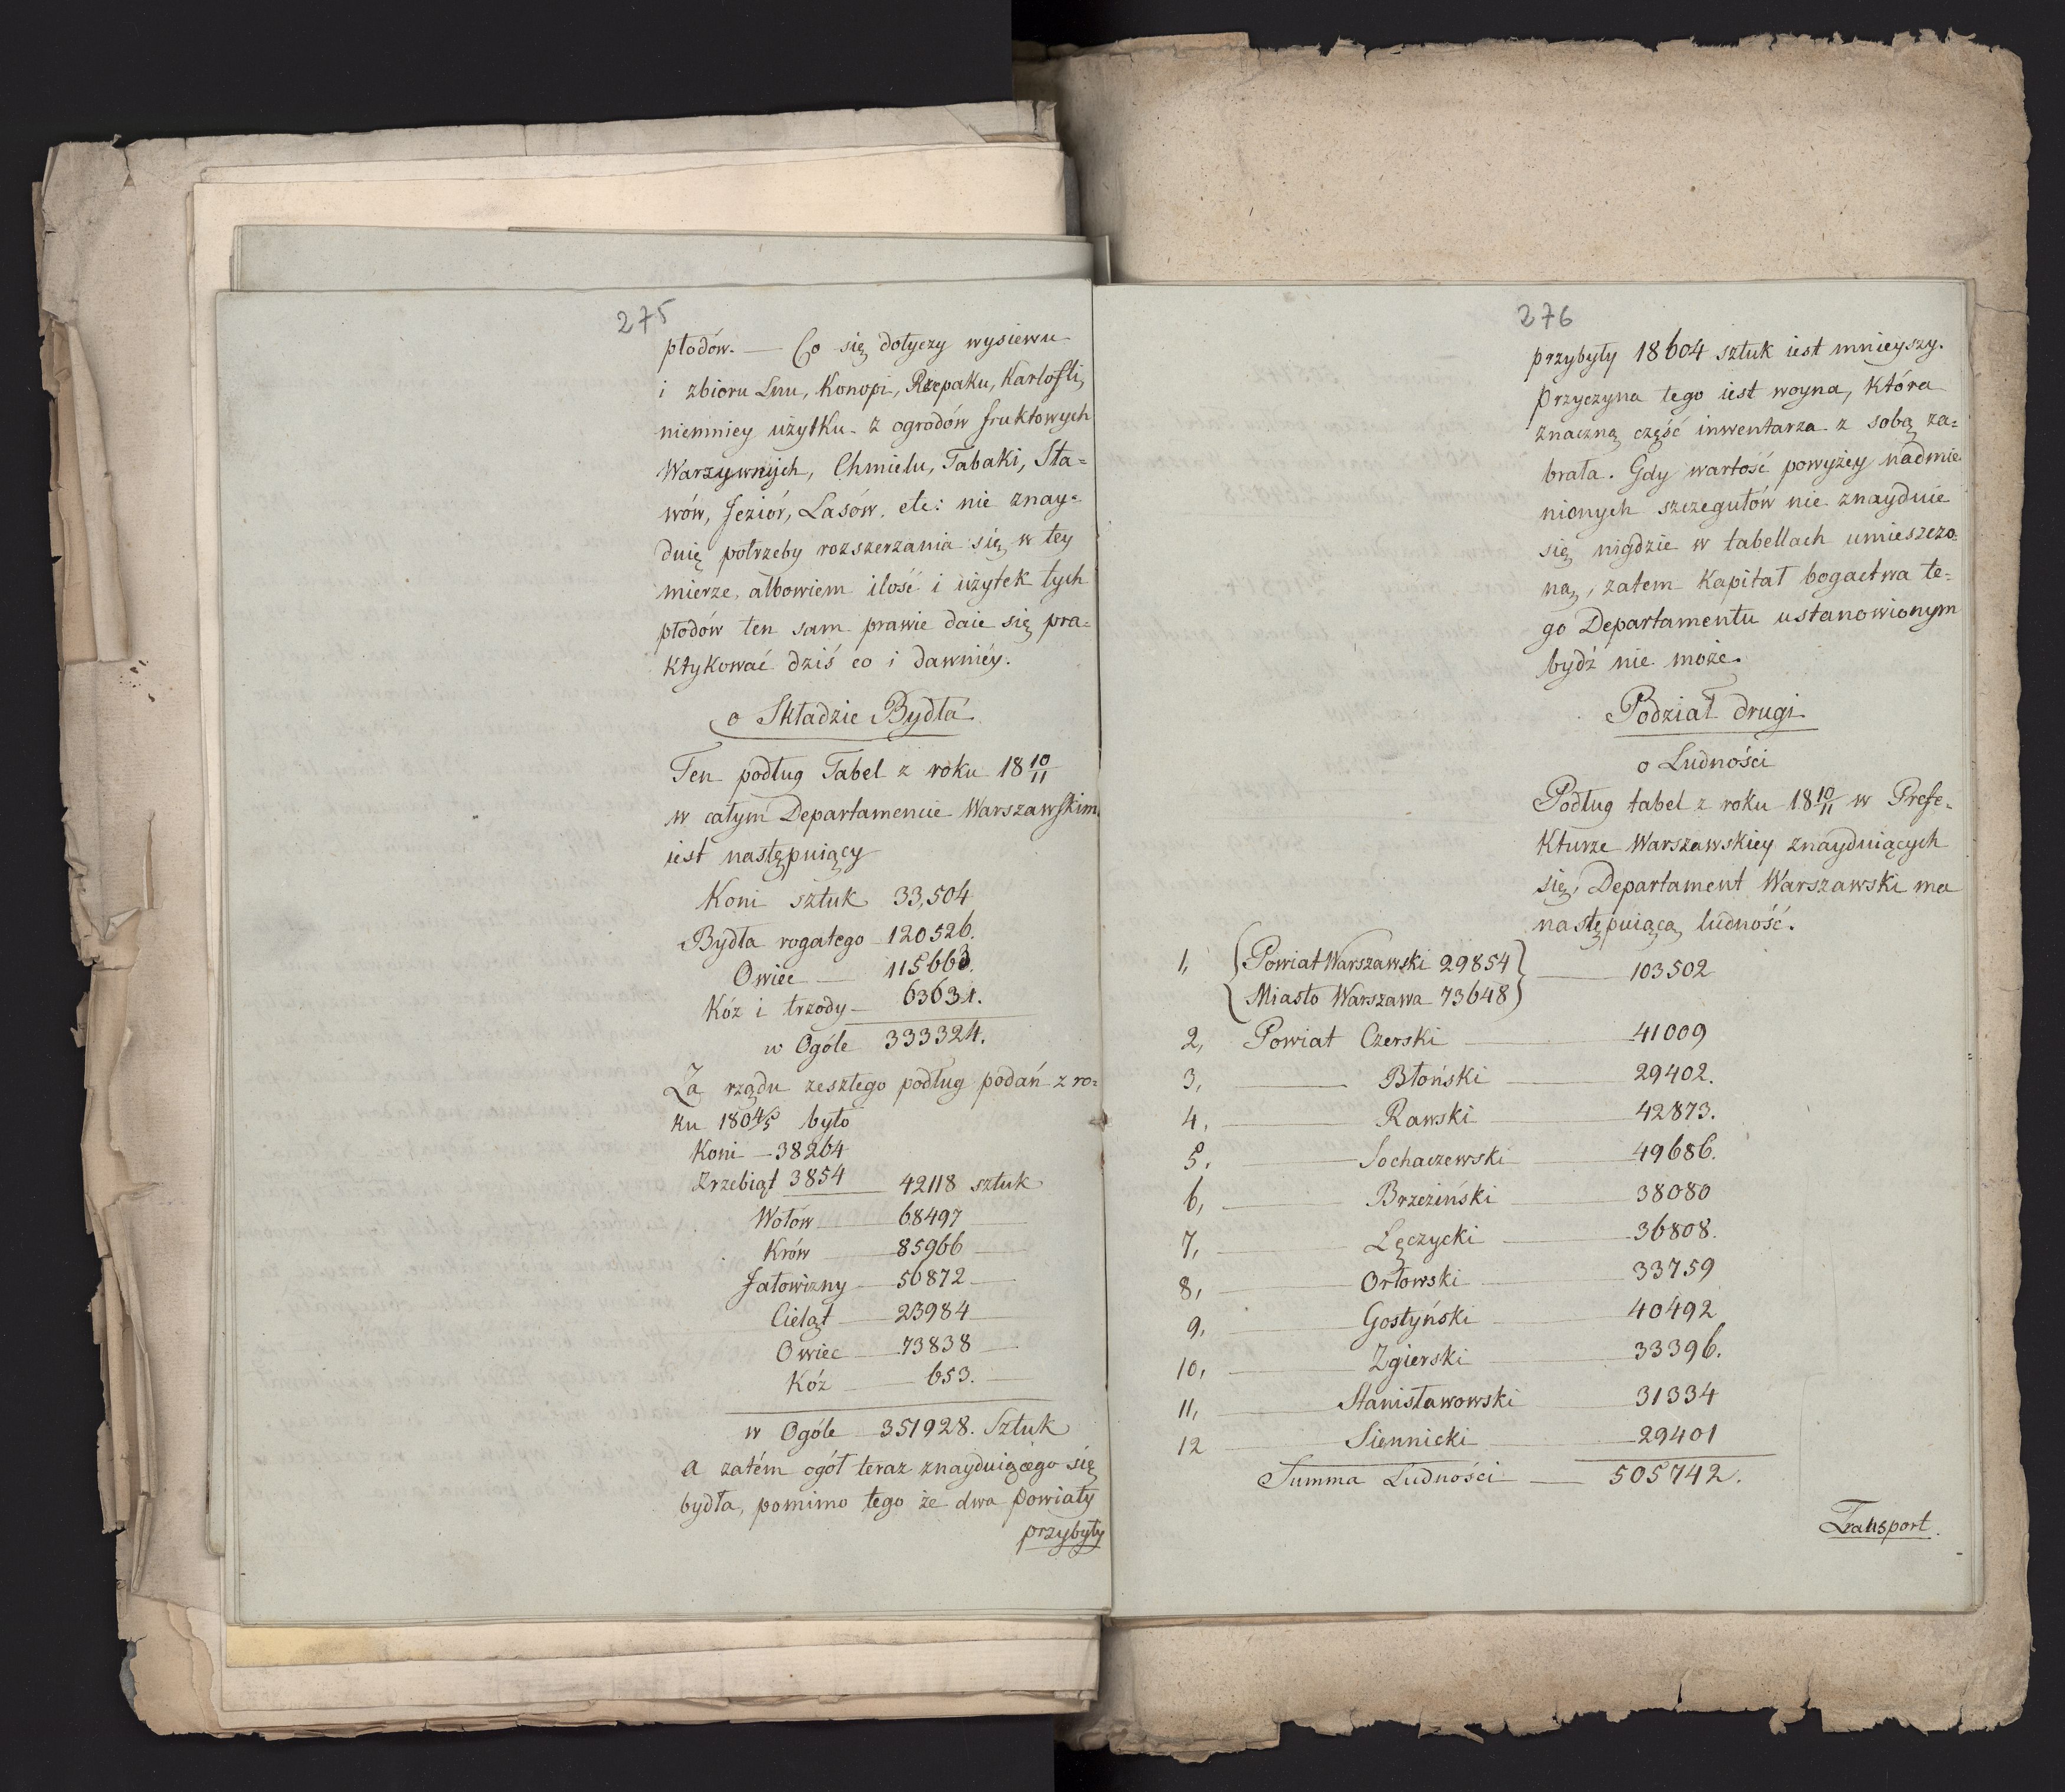 275
płodów. — Co się dotyczy wysiewu
i zbioru Lnu, Konopi, Rzepaku, Kartofli,
niemniey użytku z ogrodów fruktowych
Warzywnych, Chmielu, Tabaki, Sta=
wów, Jezior, Lasów. etc: nie znay=
duię potrzeby rozszerzania się w tey
mierze, albowiem ilość i użytek tych
płodów ten sam prawie daie się pra=
ktykować dziś co i dawniéy.
o Składzie Bydła
Ten podług Tabel z roku 18 10/11
w całym Departamencie Warszawskim
iest następuiący
Koni sztuk 33,504
Bydła rogatego 120526.
Owiec — 115663.
Kóz i trzody — 63631.
w Ogóle 333324.
Za rządu zeszłego podług podań z ro=
ku 180 4/5 było
Koni — 38264
Zrzebiąt 3854 — 42118 sztuk
Wołów — 68497
Krów — 85966
Jałowizny — 56872
Cieląt — 23984
Owiec — 73838
Kóz — 653.
w Ogóle 351928. Sztuk
a zatém ogół teraz znayduiącego się
bydła, pomimo tego że dwa Powiaty
przybyły
276
przybyły 18604 sztuk iest mnieyszy.
Przyczyna tego iest woyna, która
znaczną część inwentarza z sobą za=
brała. Gdy wartość powyżey nadmie
nionych szczegułów nie znayduie
się nigdzie w tabellach umieszczo=
ną, zatem Kapitał bogactwa te=
go Departamentu ustanowionym
bydź nie może.
Podział drugi
o Ludności
Podług tabel z roku 18 10/11 w Prefe=
kturze Warszawskiey znayduiących
się, Departament Warszawski ma
następuiącą ludność.
1, Powiat Warszawski 29854
Miasto Warszawa 73648 — 103502
2, Powiat Czerski — 41009
3, — Błoński — 29402.
4, — Rawski — 42873.
5. — Sochaczewski — 49686.
6, — Brzeziński — 38080
7, — Łęczycki — 36808.
8, — Orłowski — 33759
9, — Gostyński — 40492
10, — Zgierski — 33396.
11, — Stanisławowski — 31334
12 — Siennicki — 29401
Summa Ludności — 505742.
Transport.